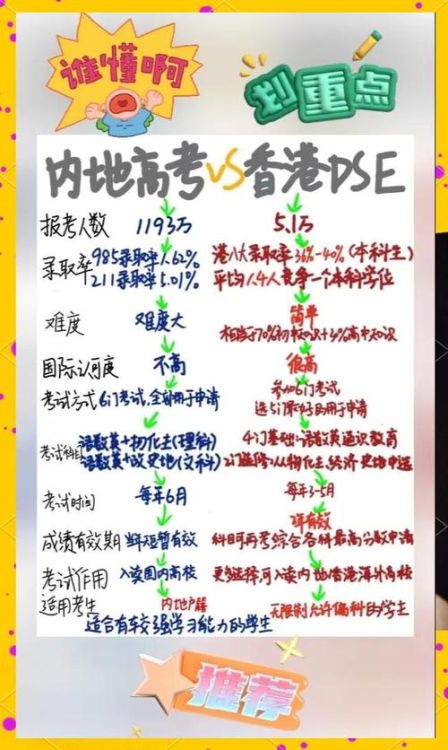 谁懂啊
划重点
内地高考VS香港DSE
报考人数 1193万 5.1万
录取率 985录取率1.62% 港八大录取率36%-40%(本科生)
211录取率5.01% 平均1.4人竞争一个本科学位
难度 难度大 简单
相当于70%初中知识+
国际认可度 不高 很高
考试方式 6门考试,全部用于申请 参加6门考试
选5门最好的用于申请
考试科目 语数英+物化生(理科) 4门基础:语数英通识教育
语数英+政史地(文科) 2门选修:从物化生、经济史地中选
考试时间 每年6月 每年3-5月
成绩有效期 当年短暂有效 年有效
科目可再考综合各科最高分数申请
考试作用 入读国内高校 更多选择,可入读内地香港海外高校
适用考生 内地户籍 无限制允许偏科的学生
适合有较强学习能力的学生
推荐